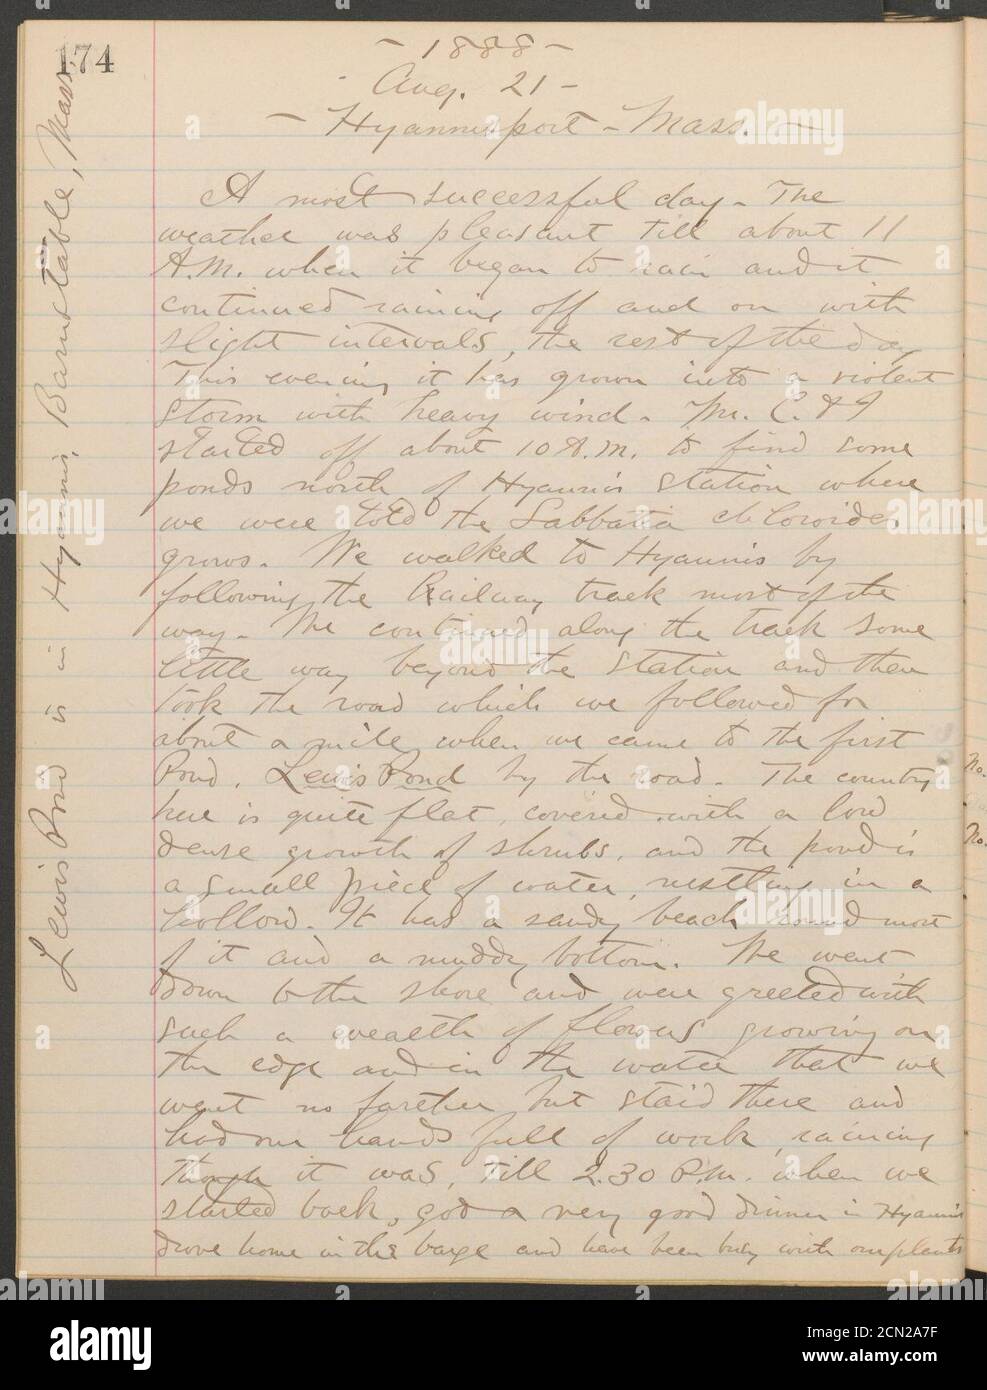 174
- 1888 -
- Aug. 21 -
- Hyannisport - Mass. -
A most successful day - The
weather was pleasant till about 11
A.M. when it began to rain and it
continued raining off and on with
slight intervals, the rest of the day
This evening it has grown into a violent
storm with heavy wind. Mr. C. & I
started off about 10 A.M. to find some
ponds north of Hyannis Station where
we were told the Sabbatia chloroides
grows. We walked to Hyannis by
following the Railway track most of the
way. We continued along the track some
little way beyond the station and then
took the road which we followed for
about a mile, when we came to the first
Pond, Lewis Pond by the road. The country
here is quite flat, covered with a low
dense growth of shrubs, and the pond is
a small piece of water, nestling in a
hollow. It has a sandy beach round most
of it and a muddy bottom. We went
down to the shore and were greeted with
such a wealth of flowers growing on
the edge and in the water that we
went no farther but staid there and
had our hands full of work, raining
though it was, till 2.30 P.M. when we
started back, got a very good dinner in Hyannis
drove home in the barge and have been busy with our plants
Lewis Pond is in Hyannis, Barnstable, Mass.
No.
No.
alamy
Image ID: 2CN2A7F
www.alamy.com